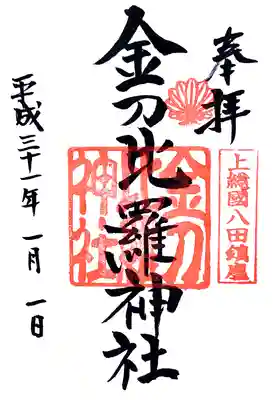 奉拝
上総國八田鎮座
金刀比羅神社
金刀
神社
平成三十一年一月一日